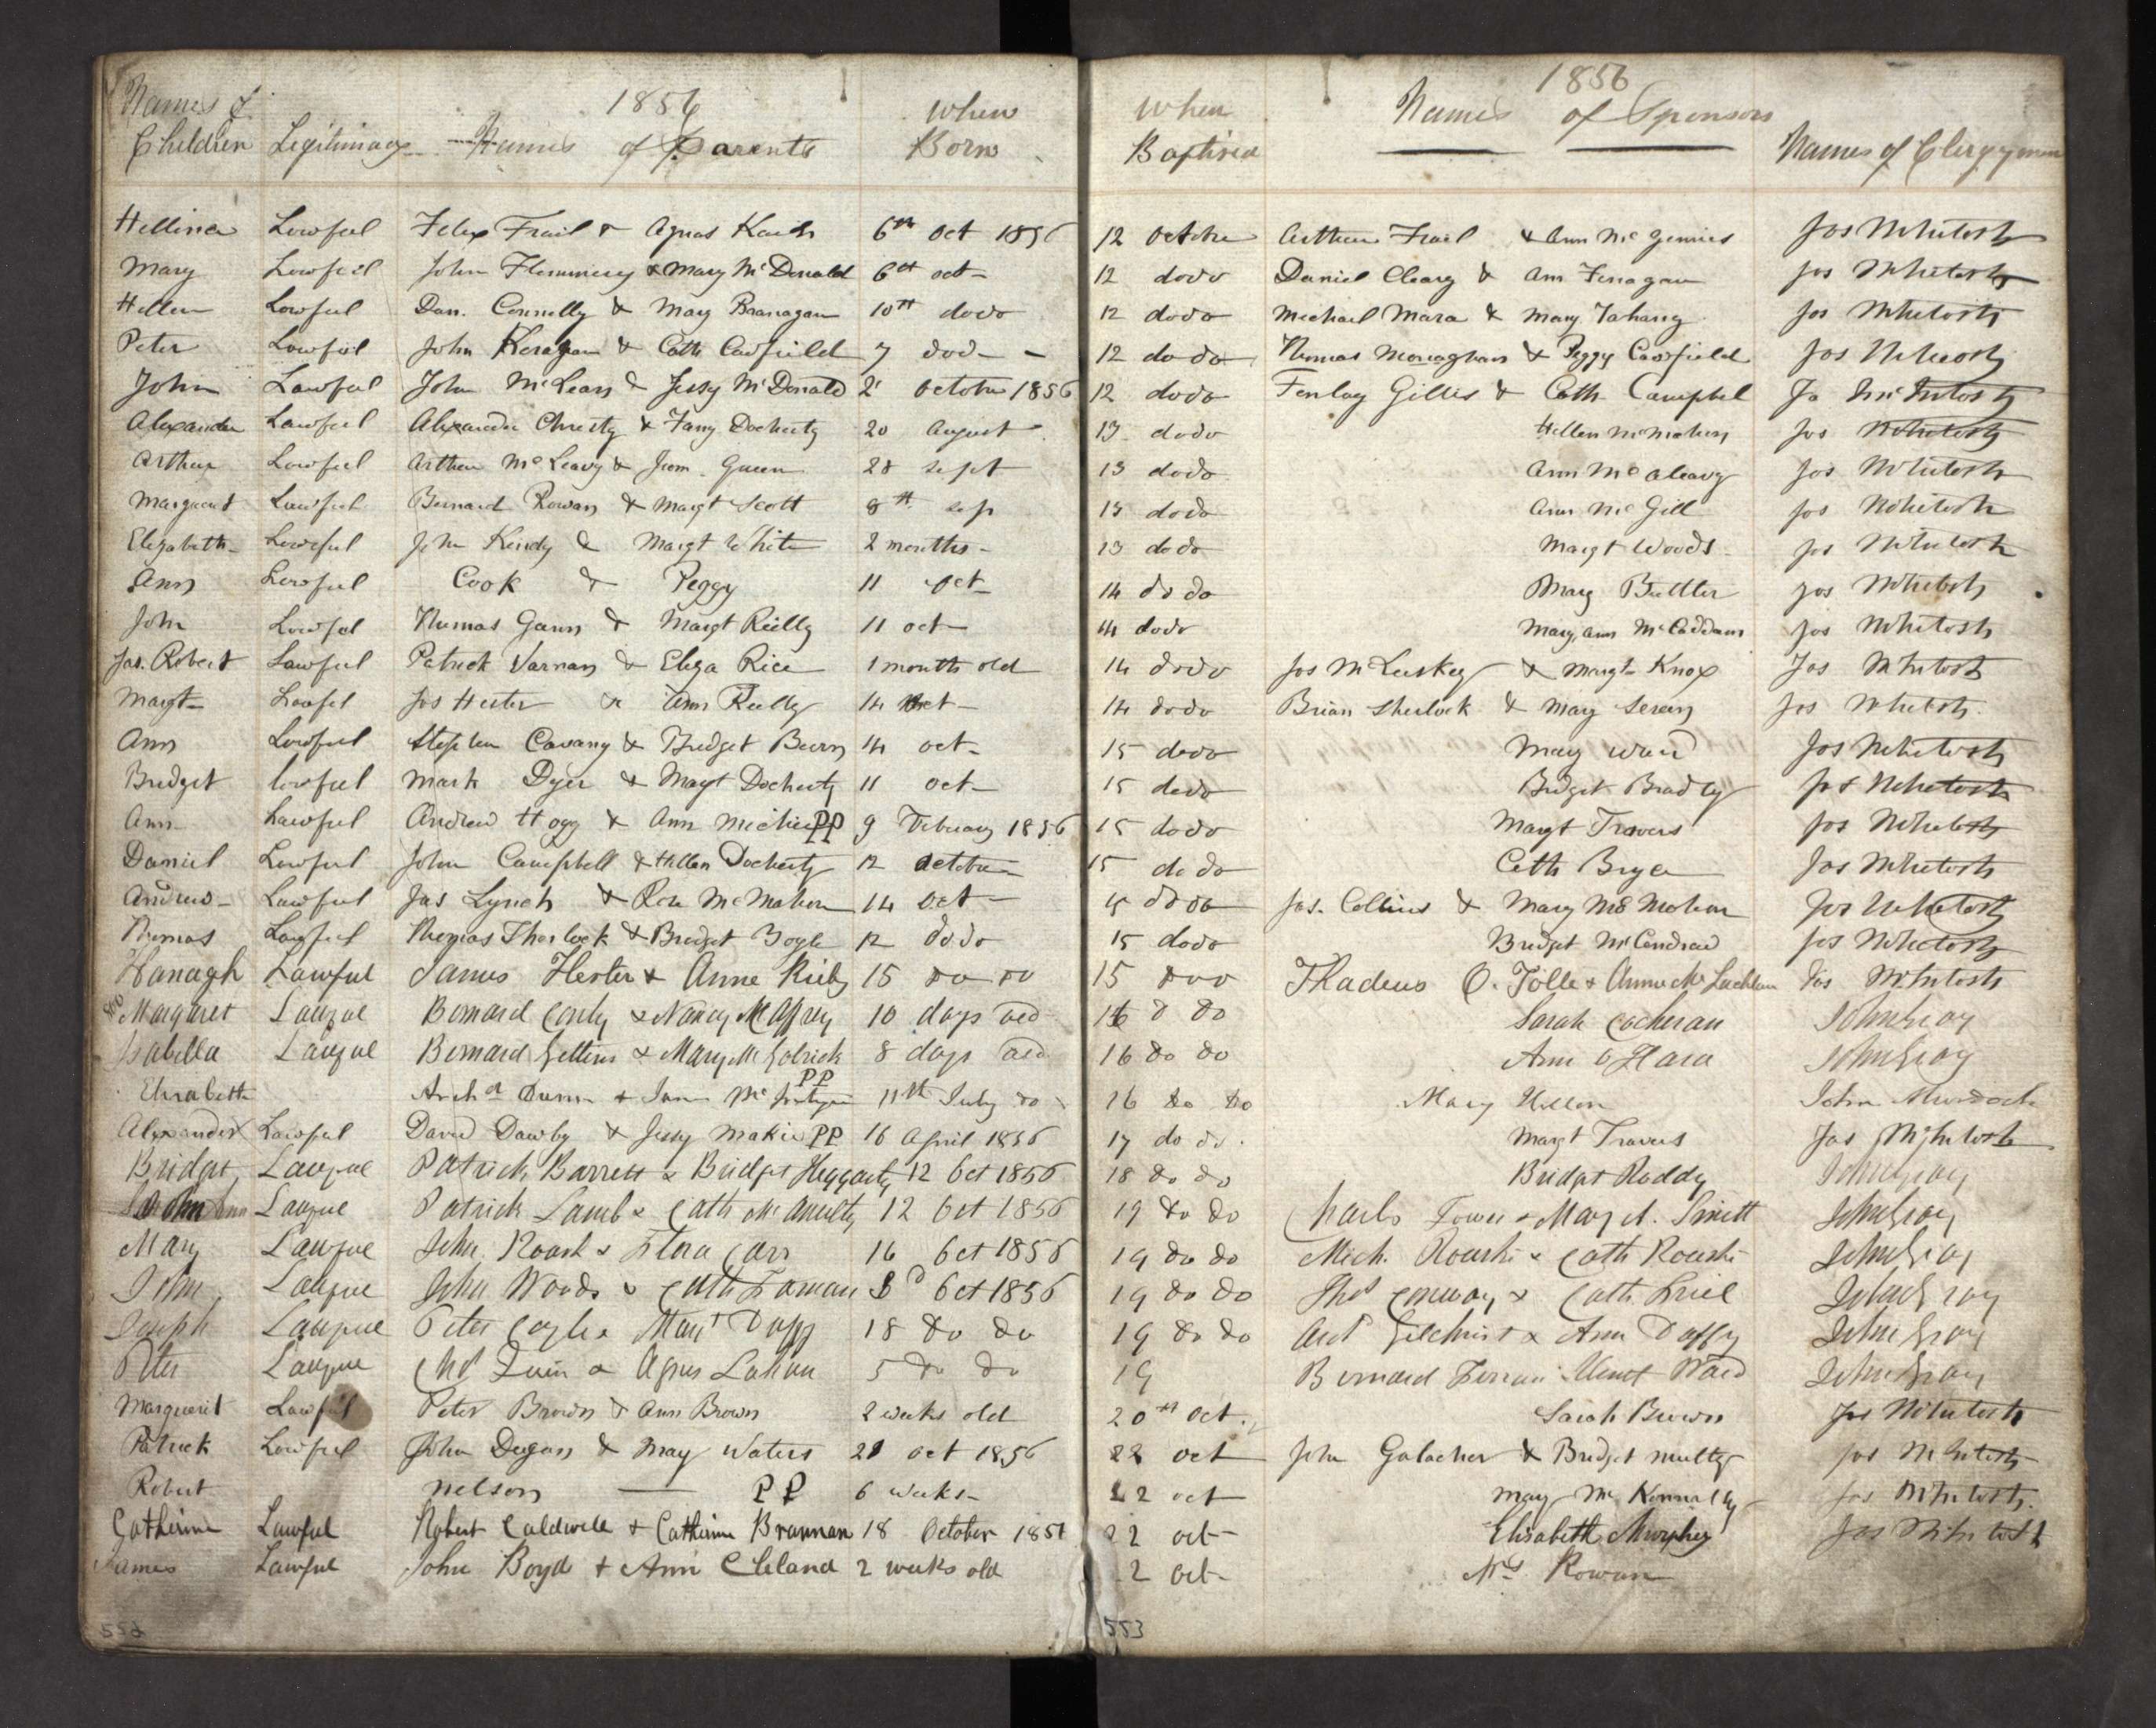 1856 1856
Names of When When Names of Sponsors
Children Legitimacy Names of Parents Born Baptised Names of Clergymen
Hellina Lawful Felix Frail & Agnas 6th Oct 1856 12 October Arthur Frail & Ann McGinnies Jos McIntosh
Mary Lawful John Flemming & Mary McDonald 6th oct 12 dodo Daniel Cleary & Ann Finagan Jos McIntosh
Hellen Lawful Dan. Connelly & Mary Branagan 10th dodo 12 dodo Michael Mara & Mary Jos McIntosh
Peter Lawful John & Cath Caufield 7 dod 12 do do Thomas Monaghan & Peggy Caufield Jos McIntosh
John Lawful John McLean & Jessy McDonald 2 October 1856 12 dodo Finlay Gillis & Cath Campbel Jo McIntosh
Alexander Lawful Alexander Christy & Fany Docherty 20 August 13 dodo Hellen McMahon Jos McIntosh
Arthur Lawful Arthur McLeavy & Green 28 sept 13 dodo Ann McAleavy Jos McIntosh
Margaret Lawful Bernard Rowan & Margt Scott 8th sep 13 dodo Ann McGill Jos McIntosh
Elizabeth Lawful John & Margt White 2 months 13 dodo Margt Woods Jos McIntosh
Ann Lawful Cook & Peggy 11 oct 14 do do Mary Buttler Jos McIntosh
John Lawful Thomas Gann & Margt Reilly 11 oct 14 dodo Mary ann McCaddam Jos McIntosh
Jas. Robert Lawful Patrick Varnan & Eliza Rice 1 month old 14 dodo Jos McLuskey & Margt Knox Jos McIntosh
Margt Lawful Jos Hester & Ann Reilly 14 oct 14 dodo Brian Sherlock & Mary Jos McIntosh
Ann Lawful Stephen Cavany & Bridget Burn 14 oct 15 dodo Mary Ward Jos McIntosh
Bridget lawful Mark Dyer & Margt Docherty 11 oct 15 dodo Bridget Bradley Jos McIntosh
Ann Lawful Andrew Hogg & Ann Michie PP 9 February 1856 15 dodo Margt Travers Jos McIntosh
Daniel Lawful John Campbell & Hellen Docherty 12 October 15 do do Cath Bryce Jos McIntosh
Andrew Lawful Jas Lynch & Rose McMahon 14 oct 15 do do Jas. Collins & Mary McMahon Jos McIntosh
Thomas Lawful Thomas & Bridget Boyle 12 dodo 15 dodo Bridget McAndrew Jos McIntosh
Hanagh Lawful James Hester & Anne 15 do do 15 doo Thadeus O. Tolle & Anne McLachlan Jos McIntosh
Margaret Lawful Bernard Conly & Nancy McAffrey 10 days old 16 d do Sarah Cocheran John Gray
Isabella Lawful Bernard Gettins & Mary McGolrick 8 days old 16 do do Ann O Hara John Gray
Elisabeth Archd Dunn & Jane PP 11th July do 16 do do Mary John Murdoch
Alexander Lawful David Dawby & Jessy Makie PP 16 April 1856 17 do do Margt Travers Jos McIntosh
Bridget Lawful Patrick Barrett & Bridget Heggarty 12 Oct 1856 18 do do Bridget Roddy John Gray
Lawful Patrick Lamb & Cath McAnulty 12 Oct 1856 19 do do Charls Tower & Mary A. Sinett John Gray
Mary Lawful John Roark & Flora Carr 16 Oct 1856 19 do do Mich. Roark & Cath Roark John Gray
John Lawful John Woods & Cath 8 Oct 1856 19 do do Thos Conway & Cath Friel John Gray
Joseph Lawful Peter Coyle & Mary Duffy 18 do do 19 do do Gilchrist & Ann Duffy John Gray
Peter Lawful Quin & Agnes 5 do do 19 Bernard Ward John Gray
Marguerit Lawful Peter Brown & Ann Brown 2 weeks old 20th oct. Sarah Brown Jos McIntosh
Patrick Lawful John Dugan & Mary Waters 21 oct 1856 22 oct John Galacher & Bridget multy Jos McIntosh
Robert nelson PP 6 weeks 22 oct Mary McKonnally Jos McIntosh.
Catherine Lawful Robert Caldwell & Catherine Brannan 18 October 1856 22 oct Elisabeth Murphy Jos McIntosh
James Lawful John Boyd & Ann Cleland 2 weeks old 2 oct Mrs Rowan
552 553